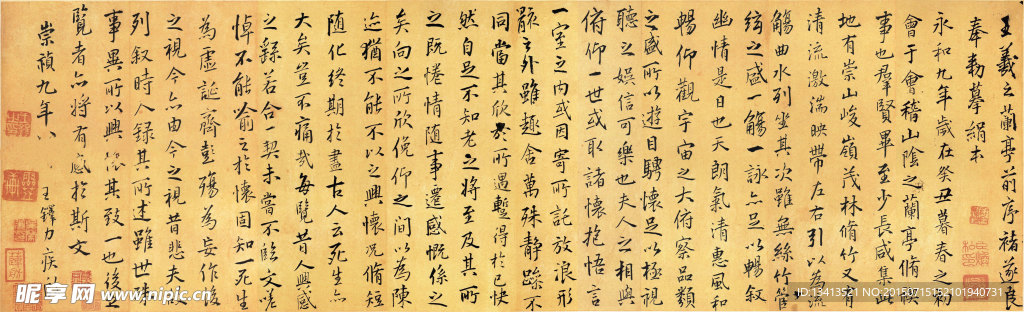 王羲之蘭亭前序褚遂良
奉勅摹絹本
永和九年歲在癸丑暮春之初
會于會稽山陰之蘭亭脩禊
事也羣賢畢至少長咸集此
地有崇山峻嶺茂林脩竹又有
清流激湍映帶左右引以為流
觴曲水列坐其次雖無絲竹管
絃之盛一觴一詠亦足以暢叙
幽情是日也天朗氣清惠風和
暢仰觀宇宙之大俯察品類
之盛所以遊目騁懷足以極視
聽之娛信可樂也夫人之相與
俯仰一世或取諸懷抱悟言
一室之内或因寄所託放浪形
骸之外雖趣舍萬殊静躁不
同當其欣於所遇暫得於己快
然自足不知老之將至及其所
之既惓情随事遷感慨係之
矣向之所欣俛仰之間以為陳
迹猶不能不以之興懷况脩短
随化終期於盡古人云死生亦
大矣豈不痛哉每覽昔人興感
之繇若合一契未嘗不臨文嗟
悼不能喻之於懷固知一死生
為虛誕齊彭殤為妄作後
之視今亦由今之視昔悲夫故
列叙時人録其所述雖世殊
事異所以興懷其致一也後之
覽者亦將有感於斯文
崇禎九年八
王鐸力疾
昵享网 www.nipic.cn
ID:13413521 NO:20150715152101940731